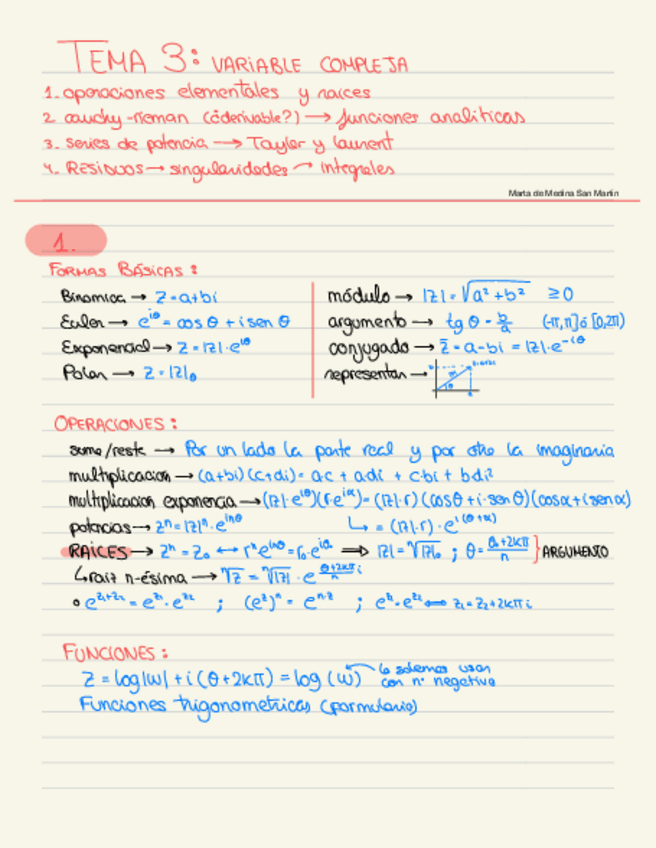 TEMA 3: VARIABLE COMPLEJA
1. operaciones elementales y raíces
2. cauchy-rieman (¿derivable?) → funciones analíticas
3. series de potencia → Taylor y Laurent
4. RESIDUOS → singularidades → integrales
Marta de Medina San Martín
1.
FORMAS BÁSICAS:
Binomica → z = a+bi
Euler → e^{iθ} = cos θ + i sen θ
Exponencial → z = |z|·e^{iθ}
Polar → z = |z|_θ
módulo → |z| = √(a²+b²) ≥ 0
argumento → tg θ = b/a (-π,π] ó [0,2π)
conjugado → z̄ = a-bi = |z|·e^{-iθ}
representar →
OPERACIONES:
suma/resta → Por un lado la parte real y por otro la imaginaria
multiplicacion → (a+bi)(c+di) = ac + adi + cbi + bdi²
multiplicacion exponencia → (|z|·e^{iθ})(r·e^{iα}) = (|z|·r)(cos θ + i·sen θ)(cos α + i sen α)
potencias → zⁿ = |z|ⁿ·e^{inθ} ↳ = (|z|·r)·e^{i(θ+α)}
RAÍCES → zⁿ = z₀ ↔ rⁿe^{inθ} = r₀·e^{iα} ⇒ |z| = ⁿ√|z|₀ ; θ = (θ₀+2kπ)/n } ARGUMENTO
↳ raiz n-ésima → ⁿ√z = ⁿ√|z| · e^{(θ+2kπ)/n i}
• e^{z₁+z₂} = e^{z₁}·e^{z₂} ; (e^z)ⁿ = e^{n·z} ; e^{z₁} = e^{z₂} ⟺ z₁ = z₂+2kπi
FUNCIONES:
z = log|w| + i(θ+2kπ) = log(w) lo solemos usar
con nº negativo
Funciones trigonometricas (formulario)